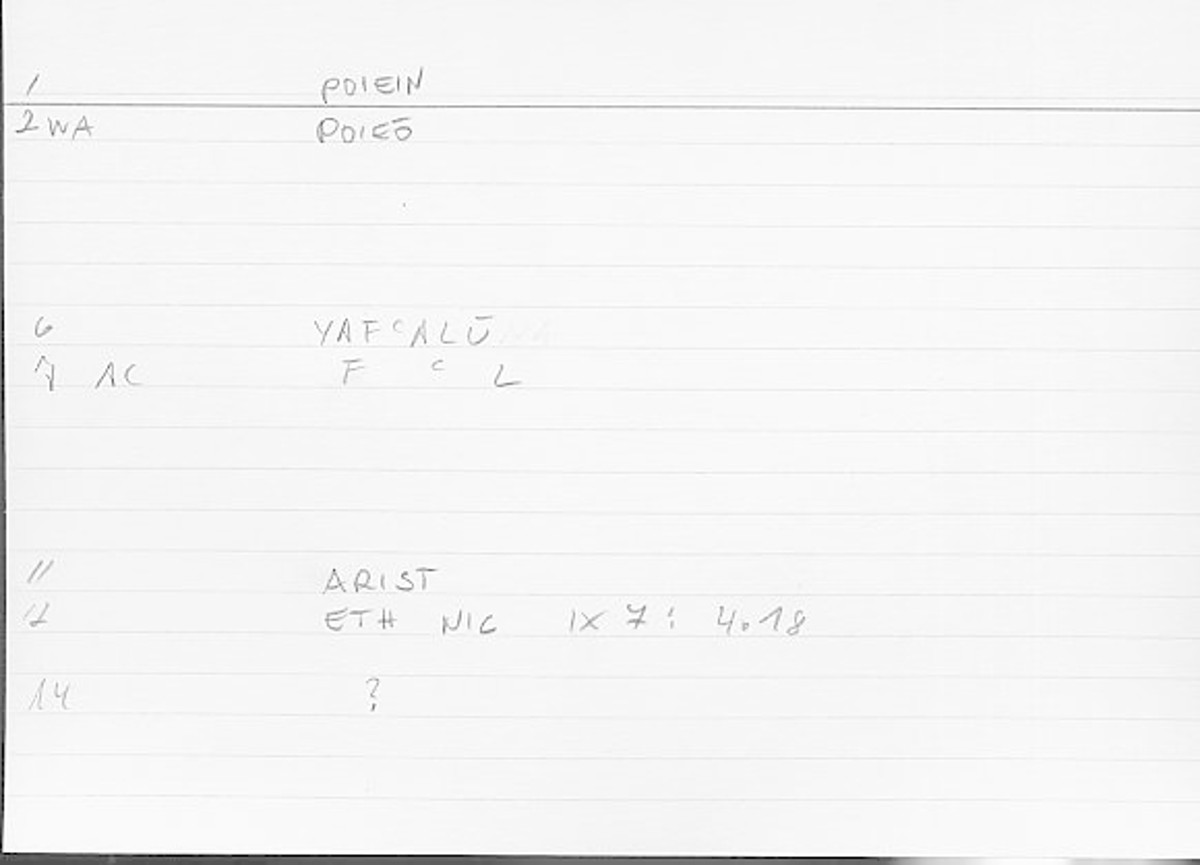 1 POIEIN
2 WA POIEŌ
6 YAFᶜALŪ
7 AC F ᶜ L
11 ARIST
12 ETH NIC IX 7: 4.18
14 ?